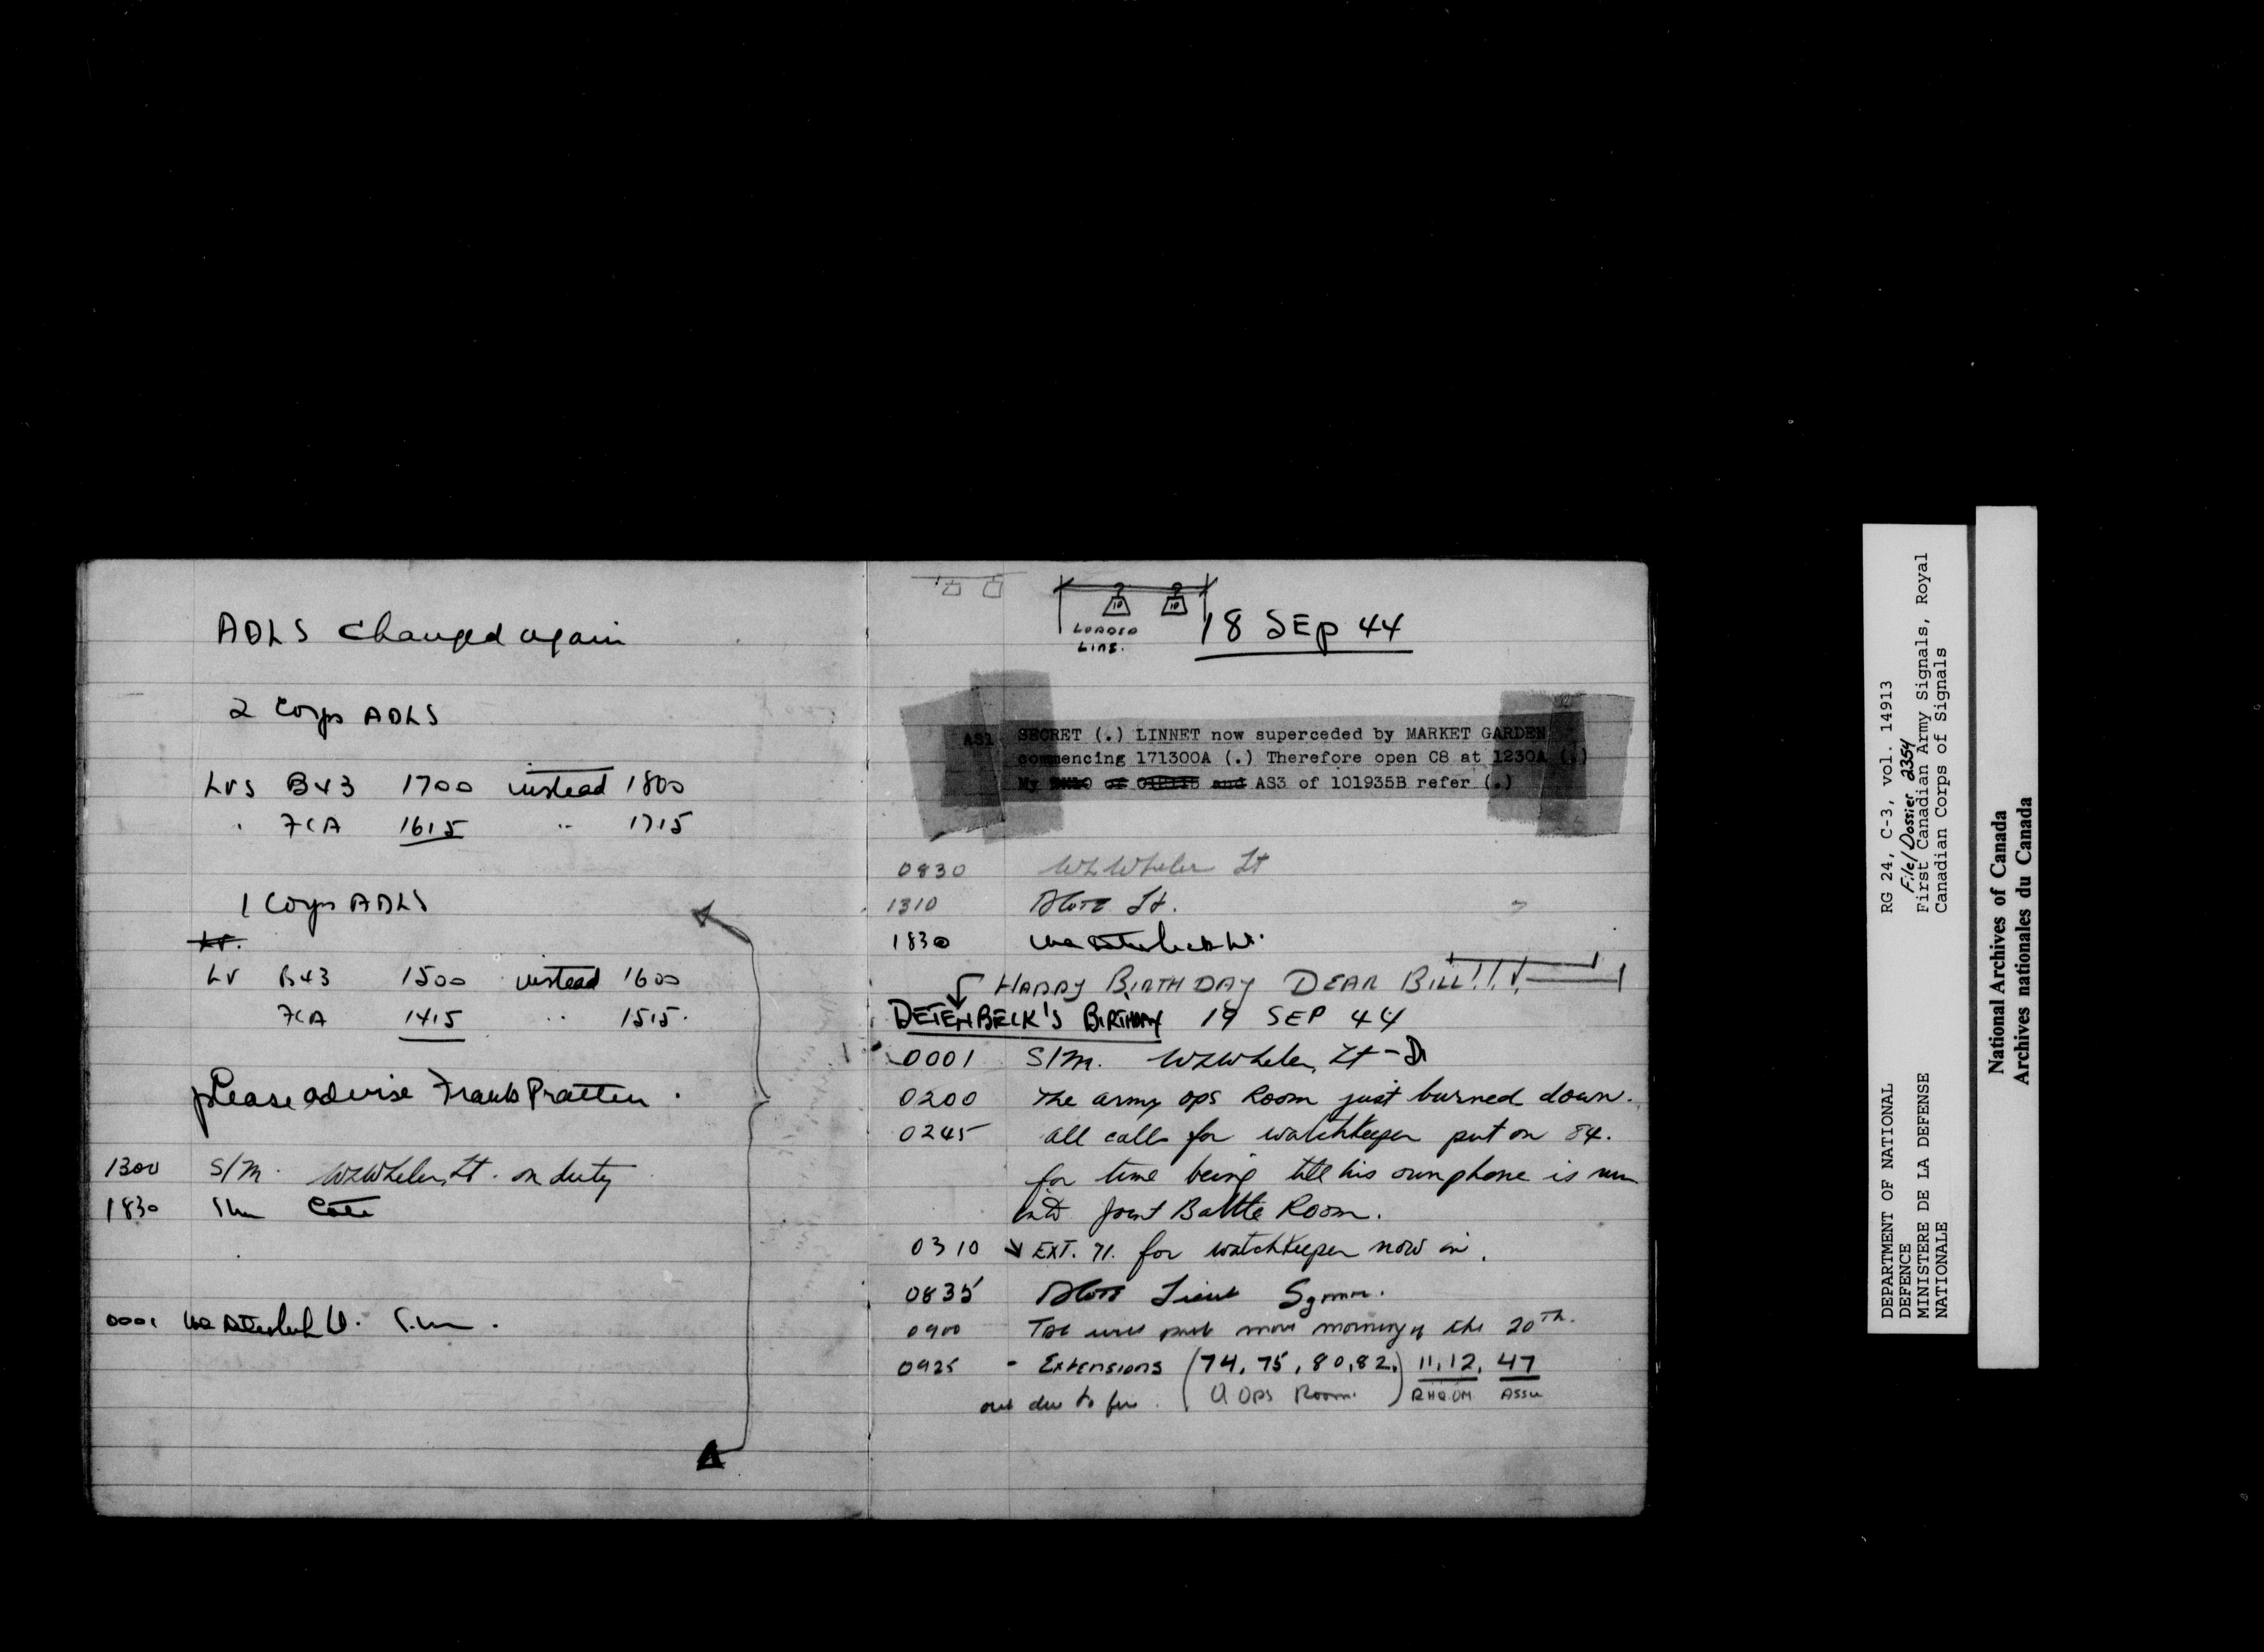 ADLS changed again
2 Corps ADLS
Lvs B43 1700 instead 1800
" FCA 1615 " 1715
1 Corps ADLS
Lv.
Lv B43 1500 instead 1600
FCA 1415 " 1515.
please advise Frank Pratten.
1300 S/m. WLWheler, Lt. on duty
1830 S/m
0001 S.m.
10 10
LOADED
LINE.
18 SEP 44
AS1 SECRET (.) LINNET now superceded by MARKET GARDEN
commencing 171300A (.) Therefore open C8 at 1230A (.)
My of and AS3 of 101935B refer (.)
0830 WLWheler Lt
1310 Lt.
1830
HAPPY BIRTHDAY DEAR BILL!!!!
DETENBECK'S BIRTHDAY 19 SEP 44
0001 S/m. WLWheler, Lt -
0200 The army ops Room just burned down.
0245 all calls for watchkeeper put on 84.
for time being till his own phone is run
into Joint Battle Room.
0310 EXT. 71. for watchkeeper now in.
0835 Lieut
0900 Tac will move morning of the 20th.
0925 - Extensions (74, 75, 80, 82,) 11, 12, 47
out due to fire. (A OPS Room.) RHQ.OM ASSU
DEPARTMENT OF NATIONAL
DEFENCE
MINISTERE DE LA DEFENSE
NATIONALE
RG 24, C-3, vol. 14913
File/Dossier 2354
First Canadian Army Signals, Royal
Canadian Corps of Signals
National Archives of Canada
Archives nationales du Canada